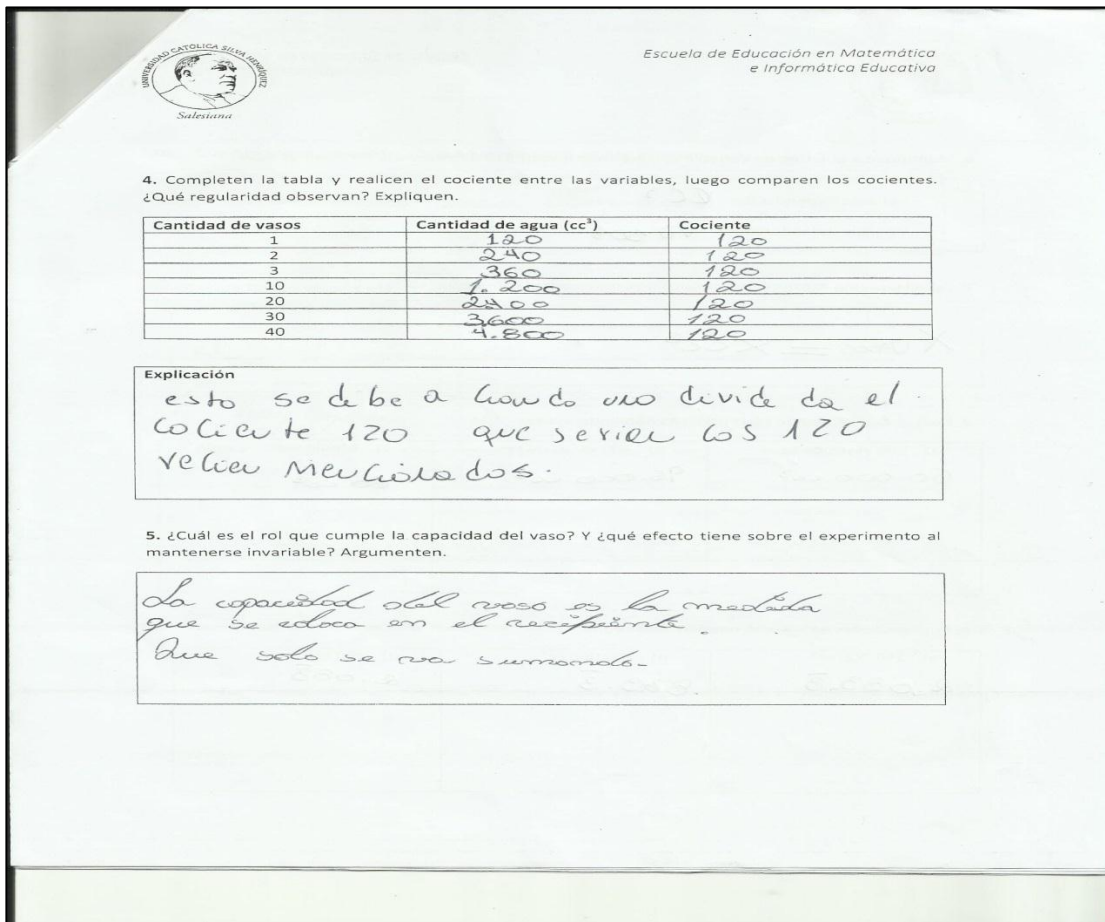 UNIVERSIDAD CATOLICA SILVA HENRIQUEZ
Salesiana
Escuela de Educación en Matemática
e Informática Educativa
4. Completen la tabla y realicen el cociente entre las variables, luego comparen los cocientes.
¿Qué regularidad observan? Expliquen.
Cantidad de vasos Cantidad de agua (cc³) Cociente
1 120 120
2 240 120
3 360 120
10 1.200 120
20 2400 120
30 3600 120
40 4.800 120
Explicación
esto se debe a cuando uno divide da el
cociente 120 que serian los 120
recien mencionados.
5. ¿Cuál es el rol que cumple la capacidad del vaso? Y ¿qué efecto tiene sobre el experimento al
mantenerse invariable? Argumenten.
La capacidad del vaso es la medida
que se coloca en el recipiente.
Que solo se va sumando.